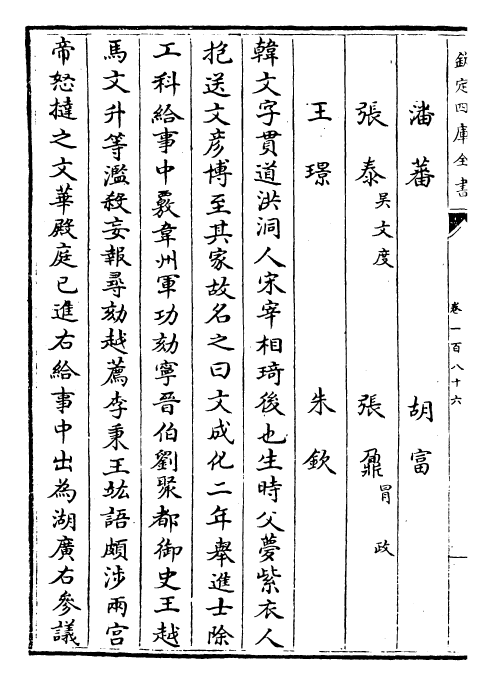 欽定四庫全書
卷一百八十六
潘蕃 胡富
張泰 吳文度 張鼐 冒政
王璟 朱欽
韓文字貫道洪洞人宋宰相琦後也生時父夢紫衣人
抱送文彦博至其家故名之曰文成化二年舉進士除
工科給事中覈韋州軍功劾寧晉伯劉聚都御史王越
馬文升等濫殺妄報尋劾越薦李秉王竑語頗涉兩宫
帝怒撻之文華殿庭已進右給事中出為湖廣右參議